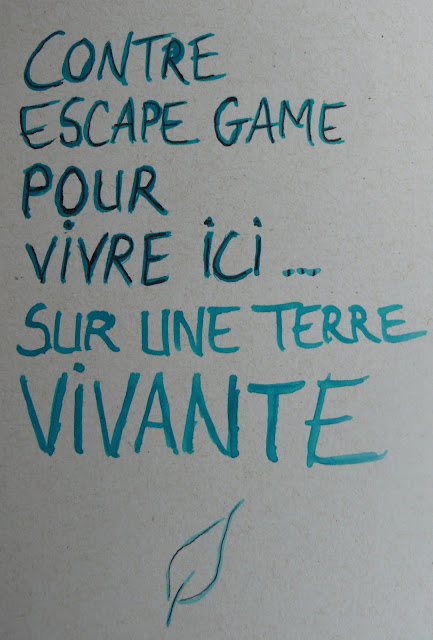 CONTRE
ESCAPE GAME
POUR
ViVRE iCi ...
SUR UNE TERRE
ViVANTE